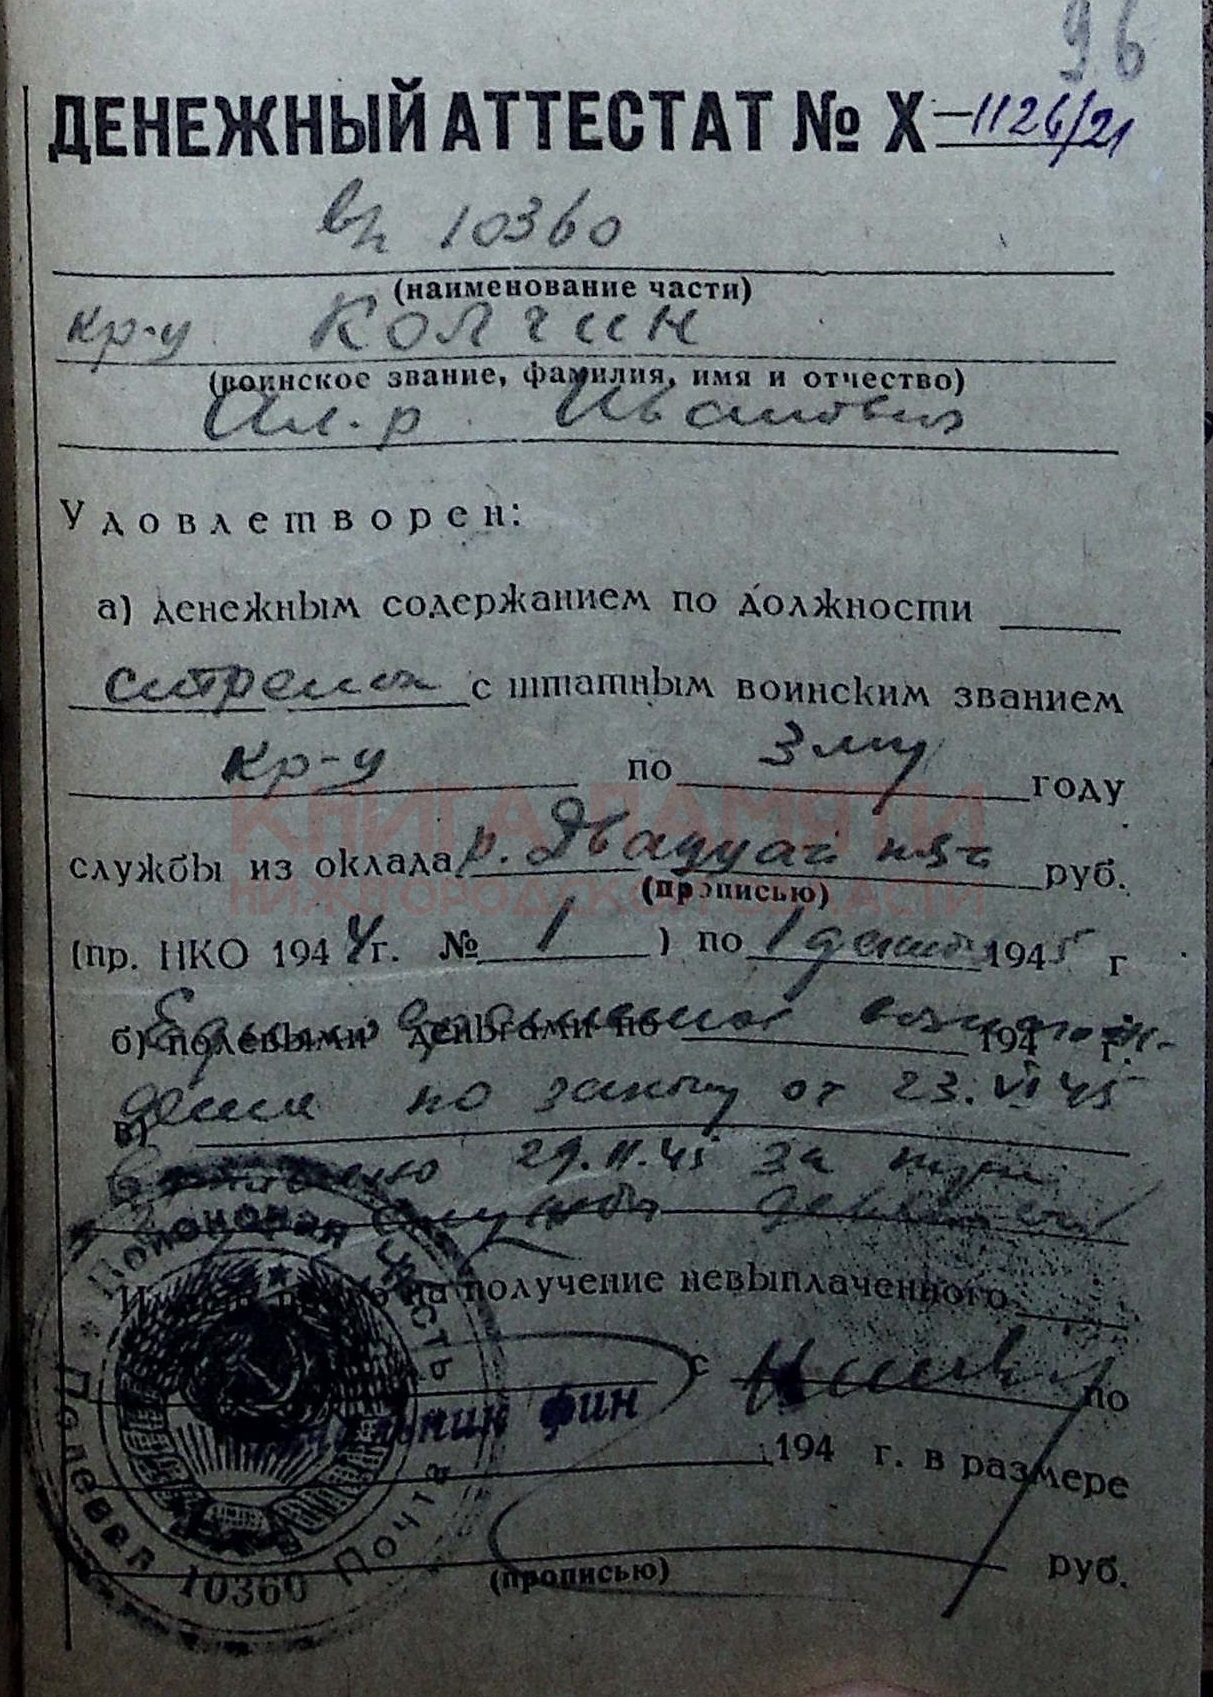 96
ДЕНЕЖНЫЙ АТТЕСТАТ № Х-1126/21
вч 10360
(наименование части)
кр-у Колчин
(воинское звание, фамилия, имя и отчество)
Ал.р Иванович
Удовлетворен:
а) денежным содержанием по должности
стрелок с штатным воинским званием
кр-у по 3 му году
службы из оклада р. Двадцать пять руб.
(прописью)
(пр. НКО 1944 г. № 1 ) по 1 декаб 1945 г
б) полевыми деньгами по 194 г.
Единовременное вознагож-
дение по закону от 23.VI 45
в)
29.11.45 за три
службы
на получение невыплаченного
с по
фин
194 г. в размере
(прописью) руб.
Войсковая часть
Полевая Почта
10360
КНИГА ПАМЯТИ
НИЖЕГОРОДСКОЙ ОБЛАСТИ